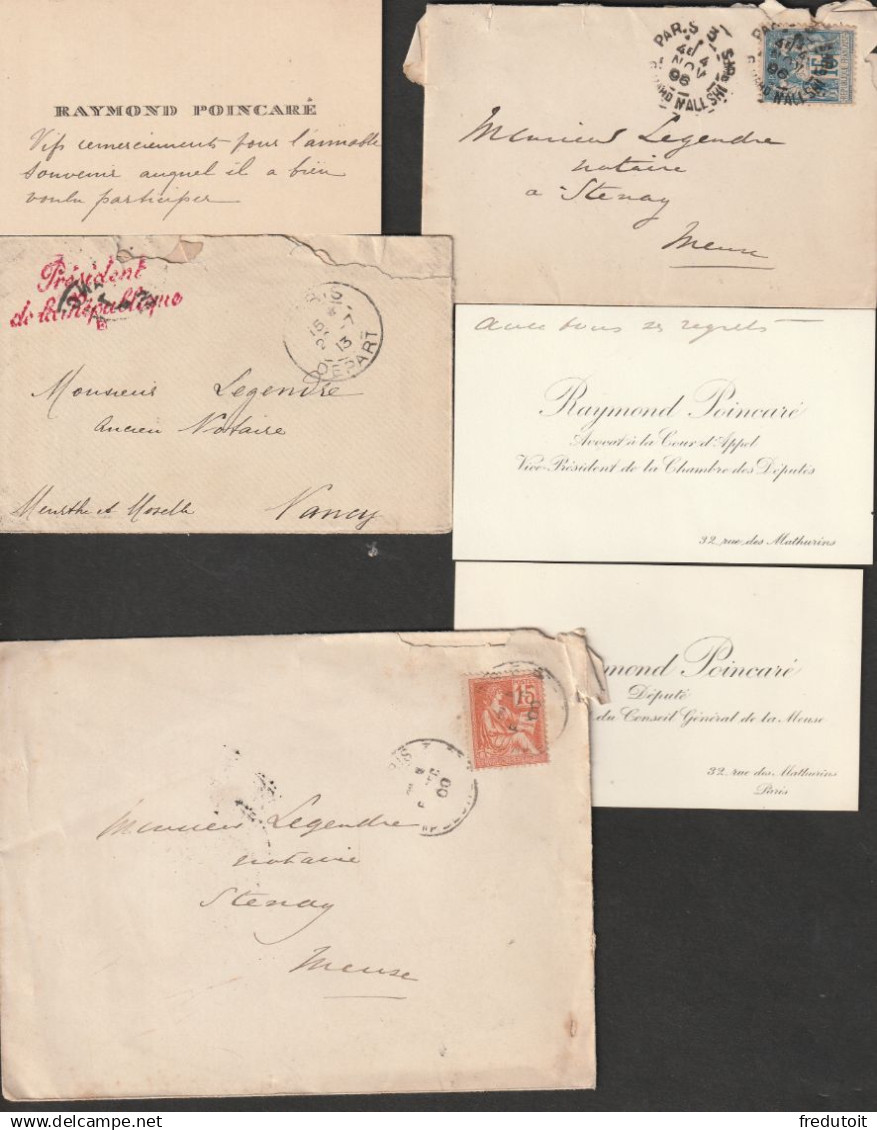 RAYMOND POINCARÉ
Vifs remerciements pour l'aimable
souvenir auquel il a bien
voulu participer
PARIS
4
NOV
96
15
REPUBLIQUE FRANCAISE
Monsieur Legendre
notaire
a Stenay
Meuse
Président
de la République
DEPART
13
Monsieur Legendre
Ancien Notaire
Meurthe et Moselle Nancy
avec tous ses regrets
Raymond Poincaré
Avocat à la Cour d'Appel
Vice-Président de la Chambre des Députés
32, rue des Mathurins
mond Poincaré
Député
du Conseil Général de la Meuse
32, rue des Mathurins
Paris
15
00
Monsieur Legendre
notaire
Stenay
Meuse
fredutoit